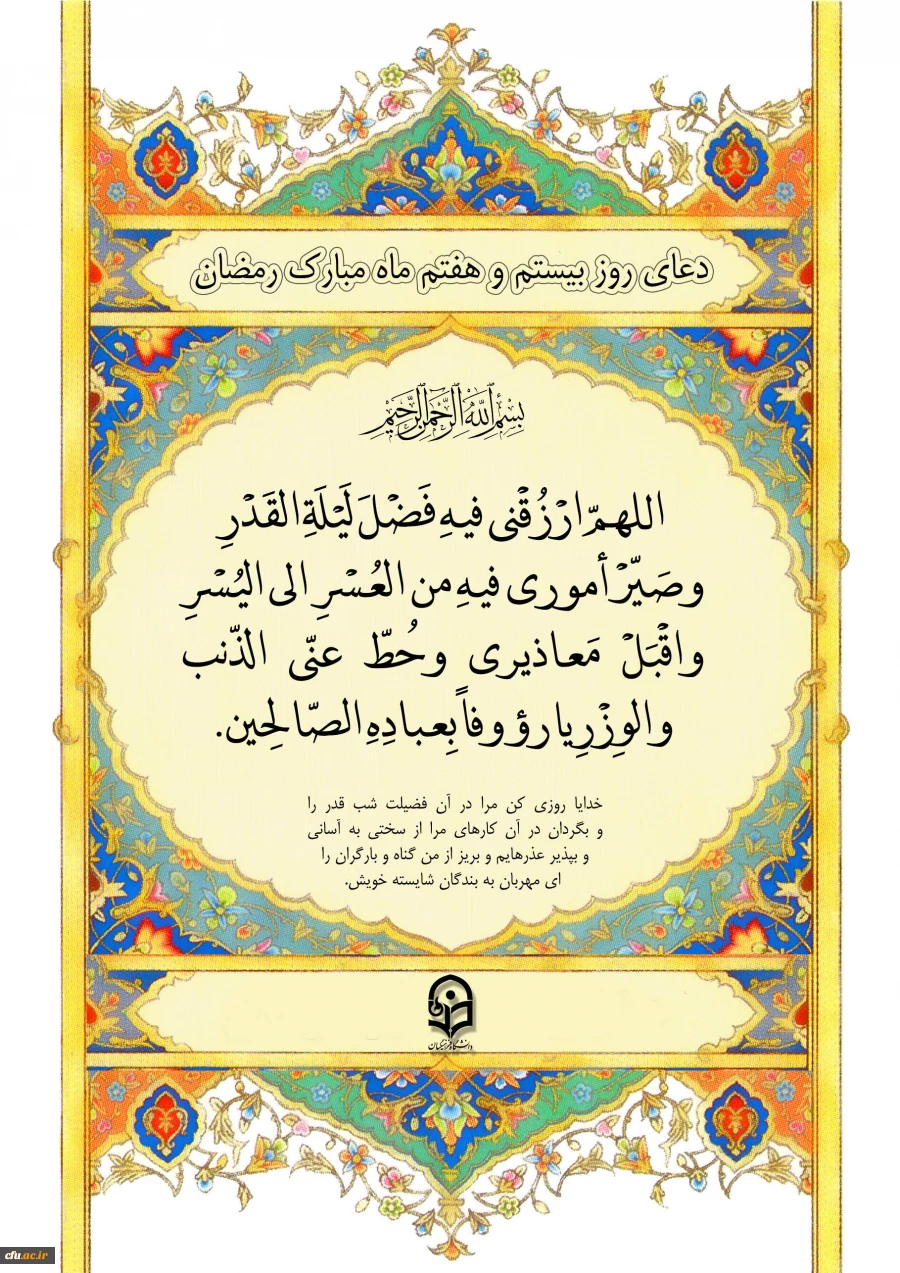 دعای روز بیستم و هفتم ماه مبارک رمضان
بِسْمِ ٱللَّهِ ٱلرَّحْمَٰنِ ٱلرَّحِيمِ
اللهمّ ارْزُقْنی فیهِ فَضْلَ لَیْلَةِ القَدْرِ
وصَیّرْ أموری فیهِ من العُسْرِ الی الیُسْرِ
واقْبَلْ مَعاذیری وحُطّ عنّی الذّنب
والوِزْرِ یا رؤوفاً بِعبادِهِ الصّالحِین.
خدایا روزی کن مرا در آن فضیلت شب قدر را
و بگردان در آن کارهای مرا از سختی به آسانی
و بپذیر عذرهایم و بریز از من گناه و بارگران را
ای مهربان به بندگان شایسته خویش.
دانشگاه فرهنگیان
cfu.ac.ir